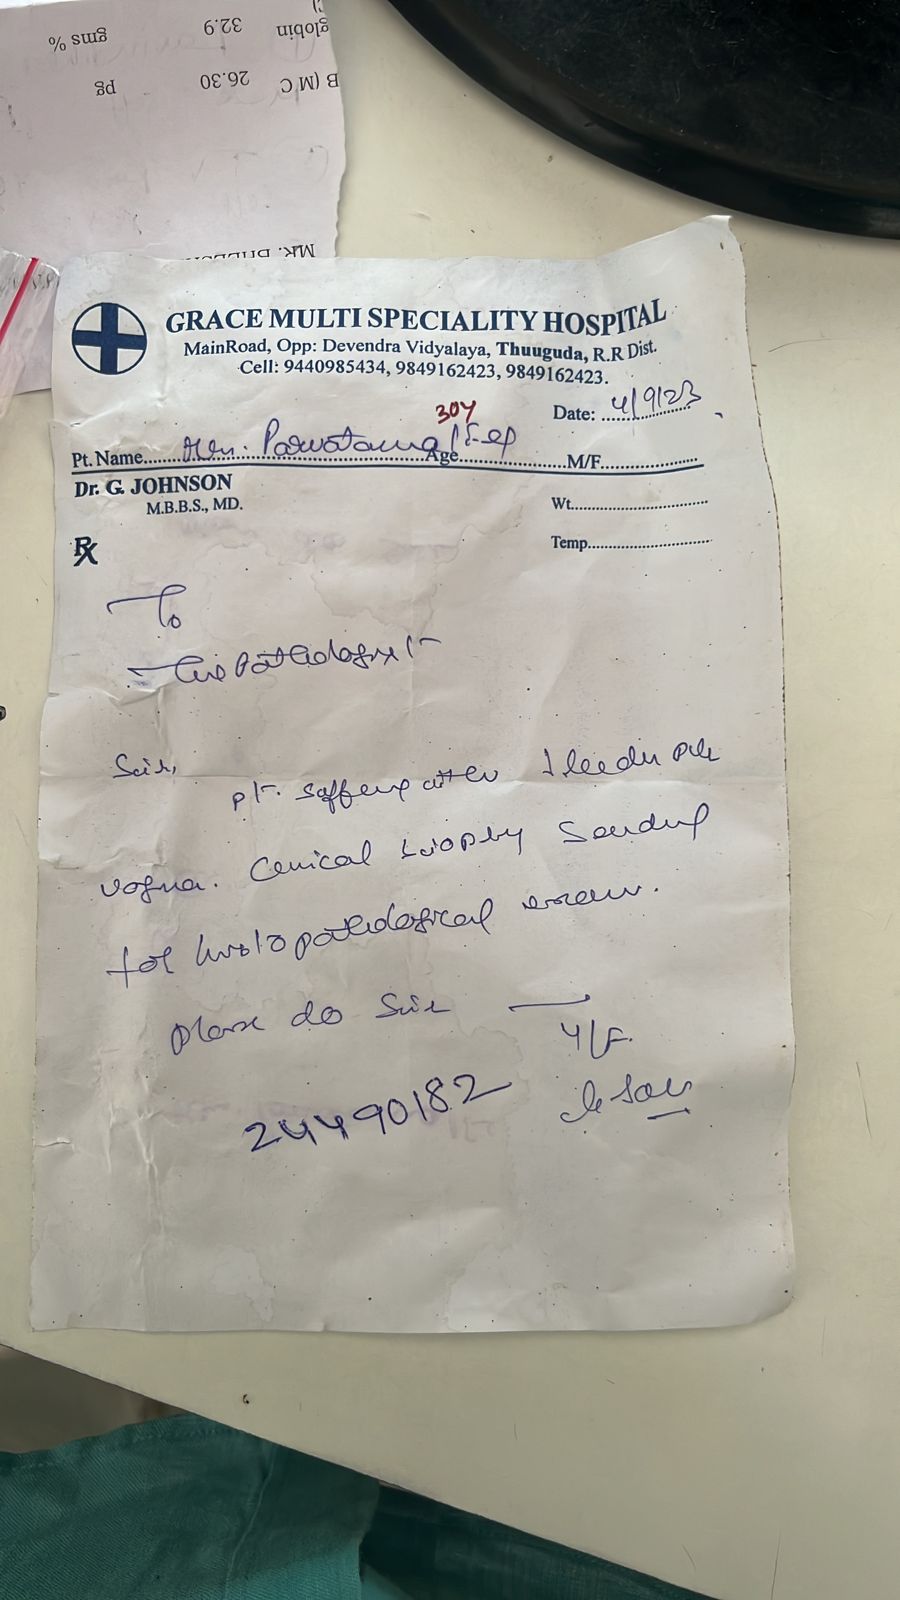 globin 32.9 gms %
B (M C 26.30 pg
MR.
GRACE MULTI SPECIALITY HOSPITAL
MainRoad, Opp: Devendra Vidyalaya, Thuuguda, R.R Dist.
Cell: 9440985434, 9849162423, 9849162423.
Date: 4/9/23
30Y
Pt. Name Parvatama Age M/F
Dr. G. JOHNSON
M.B.B.S., MD.
Wt.
Temp
Rx
To
The Pathologist
Sir,
pt. suffering bleeding
vagina. Cervical biopsy sending
for histopathological exam.
Please do Sir
24490182